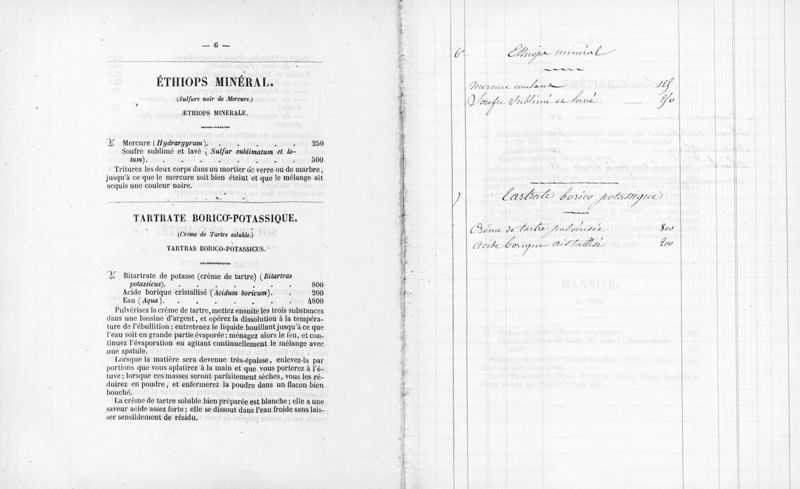 — 6 —
ÉTHIOPS MINÉRAL.
(Sulfure noir de Mercure.)
ÆTHIOPS MINERALE.
Mercure (Hydrargyrum). . . . . . . 250
Soufre sublimé et lavé (Sulfur sublimatum et lo-
tum). . . . . . . . . . . 500
Triturez les deux corps dans un mortier de verre ou de marbre,
jusqu'à ce que le mercure soit bien éteint et que le mélange ait
acquis une couleur noire.
TARTRATE BORICO-POTASSIQUE.
(Crême de Tartre soluble.)
TARTRAS BORICO-POTASSICUS.
Bitartrate de potasse (crême de tartre) (Bitartras
potassicus). . . . . . . . . 800
Acide borique cristallisé (Acidum boricum). . . 200
Eau (Aqua). . . . . . . . . 4800
Pulvérisez la crême de tartre, mettez ensuite les trois substances
dans une bassine d'argent, et opérez la dissolution à la tempéra-
ture de l'ébullition; entretenez le liquide bouillant jusqu'à ce que
l'eau soit en grande partie évaporée; ménagez alors le feu, et con-
tinuez l'évaporation en agitant continuellement le mélange avec
une spatule.
Lorsque la matière sera devenue très-épaisse, enlevez-la par
portions que vous aplatirez à la main et que vous porterez à l'é-
tuve; lorsque ces masses seront parfaitement sèches, vous les ré-
duirez en poudre, et enfermerez la poudre dans un flacon bien
bouché.
La crême de tartre soluble bien préparée est blanche; elle a une
saveur acide assez forte; elle se dissout dans l'eau froide sans lais-
ser sensiblement de résidu.
6 Ethiops minéral
Mercure coulant 125
Soufre sublimé et lavé 250
7 Tartrate borico potassique
Crême de tartre pulvérisée 800
Acide borique cristallisé 200
MANNITE.